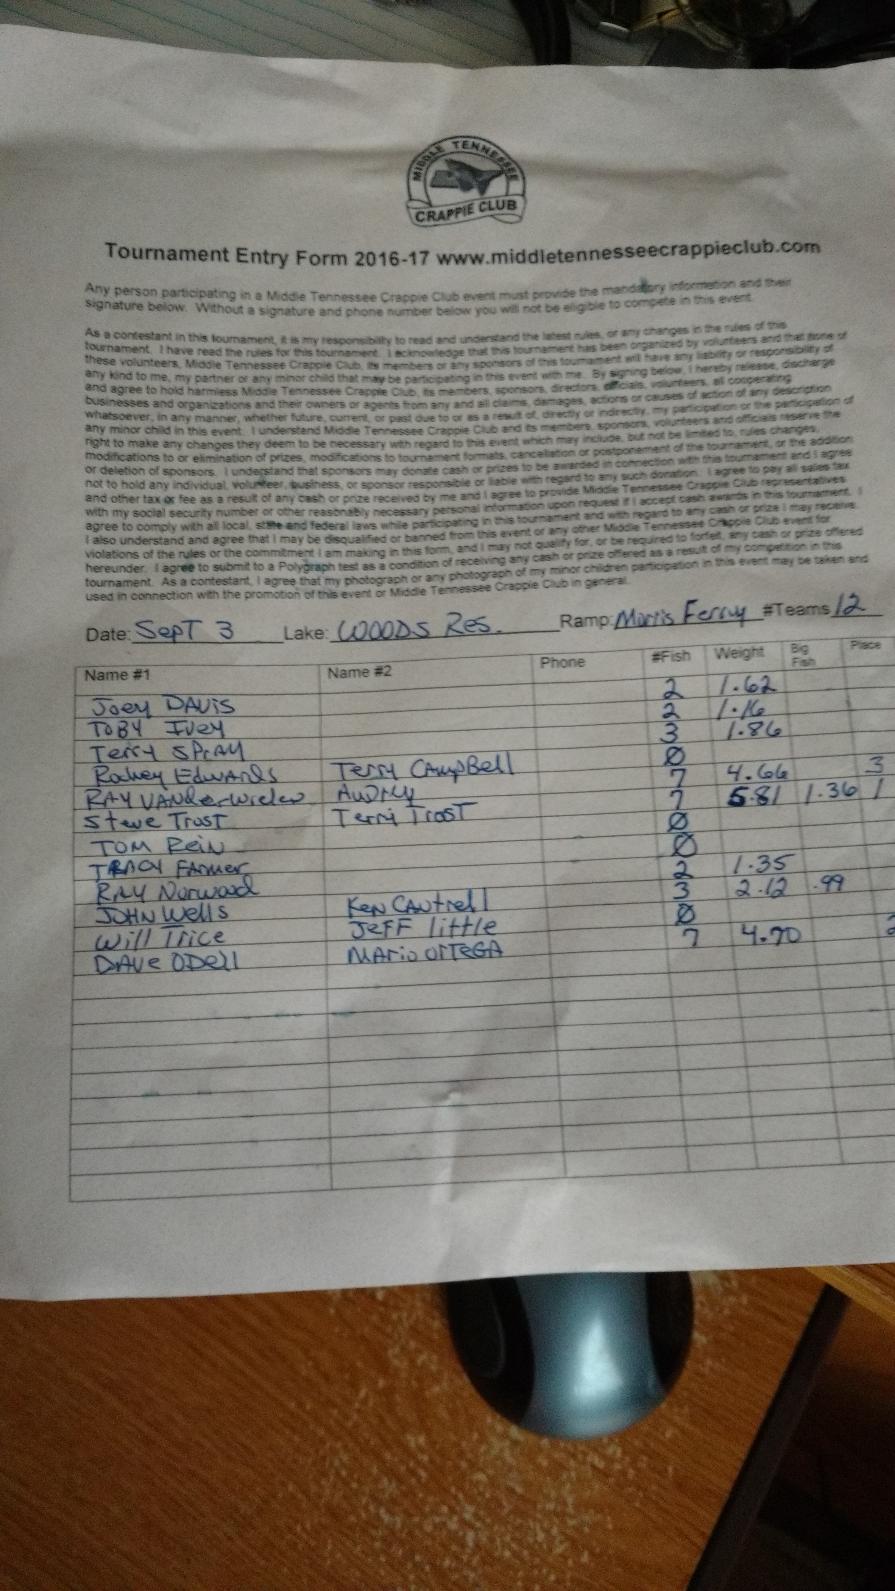 MIDDLE TENNESSEE
CRAPPIE CLUB
Tournament Entry Form 2016-17 www.middletennesseecrappieclub.com
Any person participating in a Middle Tennessee Crappie Club event must provide the mandatory information and their
signature below. Without a signature and phone number below you will not be eligible to compete in this event.
As a contestant in this tournament, it is my responsibility to read and understand the latest rules, or any changes in the rules of this
tournament. I have read the rules for this tournament. I acknowledge that this tournament has been organized by volunteers and that none of
these volunteers, Middle Tennessee Crappie Club, its members or any sponsors of this tournament will have any liability or responsibility of
any kind to me, my partner or any minor child that may be participating in this event with me. By signing below, I hereby release, discharge
and agree to hold harmless Middle Tennessee Crappie Club, its members, sponsors, directors, officials, volunteers, all cooperating
businesses and organizations and their owners or agents from any and all claims, damages, actions or causes of action of any description
whatsoever, in any manner, whether future, current, or past due to or as a result of, directly or indirectly, my participation or the participation of
any minor child in this event. I understand Middle Tennessee Crappie Club and its members, sponsors, volunteers and officials reserve the
right to make any changes they deem to be necessary with regard to this event which may include, but not be limited to, rules changes,
modifications to or elimination of prizes, modifications to tournament formats, cancellation or postponement of the tournament, or the addition
or deletion of sponsors. I understand that sponsors may donate cash or prizes to be awarded in connection with this tournament and I agree
not to hold any individual, volunteer, business, or sponsor responsible or liable with regard to any such donation. I agree to pay all sales tax
and other tax or fee as a result of any cash or prize received by me and I agree to provide Middle Tennessee Crappie Club representatives
with my social security number or other reasonably necessary personal information upon request if I accept cash awards in this tournament. I
agree to comply with all local, state and federal laws while participating in this tournament and with regard to any cash or prize I may receive.
I also understand and agree that I may be disqualified or banned from this event or any other Middle Tennessee Crappie Club event for
violations of the rules or the commitment I am making in this form, and I may not qualify for, or be required to forfeit, any cash or prize offered
hereunder. I agree to submit to a Polygraph test as a condition of receiving any cash or prize offered as a result of my competition in this
tournament. As a contestant, I agree that my photograph or any photograph of my minor children participation in this event may be taken and
used in connection with the promotion of this event or Middle Tennessee Crappie Club in general.
Date: SEPT 3 Lake: WOODS RES. Ramp: Morris Ferry #Teams 12
Name #1 Name #2 Phone #Fish Weight Big Fish Place
Joey DAVIS 2 1.62
TOBY IVEY 2 1.16
Terry SPRAY 3 1.86
Rodney Edwards Terry CAMPBELL Ø
RAY VANderwielen AUDREY 7 4.66 3
Steve Trost Terri Trost 7 5.81 1.36 1
TOM REIN Ø
TRACY FARMER Ø
RAY Norwood 2 1.35
JOHN Wells KEN CANtrell 3 2.12 .99
Will Trice JEFF little Ø
DAVE ODELL MARio ORTEGA 7 4.70 2